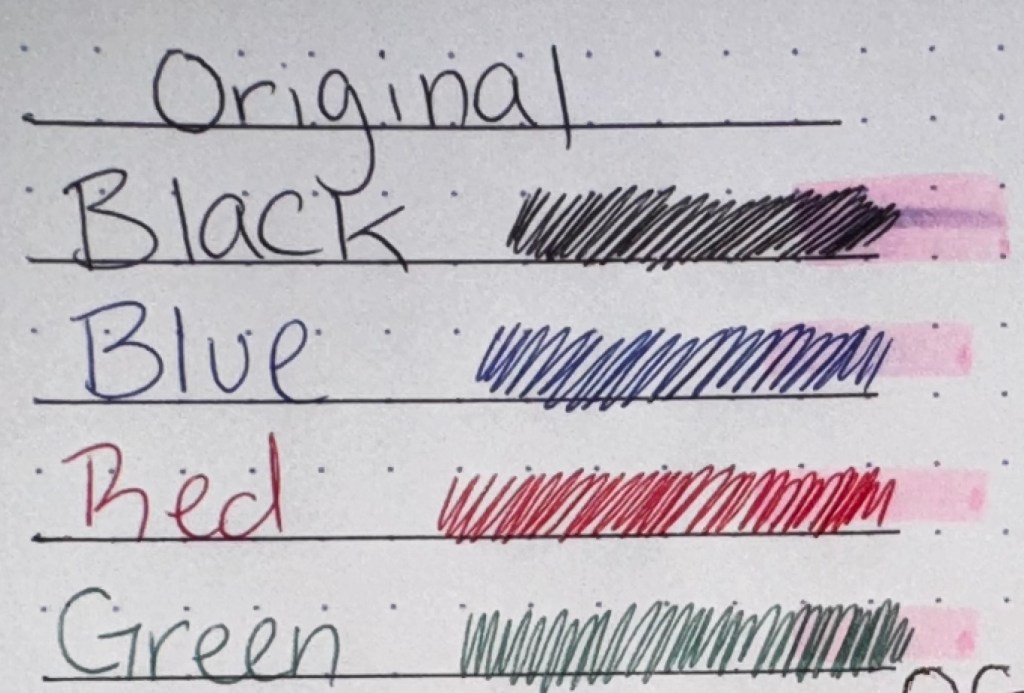 Original
Black
Blue
Red
Green